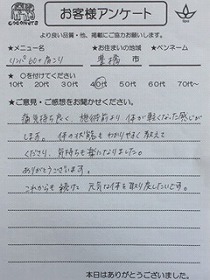 お客様アンケート
より良い品質・他、掲載にご協力お願いします。
★メニュー名 ★お住まいの地域 ★ペンネーム
リンパ60+肩こり 豊橋 市
★ ○を付けてください
10代 20代 30代 40代 50代 60代 70代~
★ご意見・ご感想をお聞かせください。
痛気持ち良く、施術前より体が軽くなった感じが
します。体の状態もわかりやすく教えて
くださり、気持ちも楽になりました。
ありがとうございます。
これからも続けて元気な体を取り戻したいです。
本日はありがとうございました。